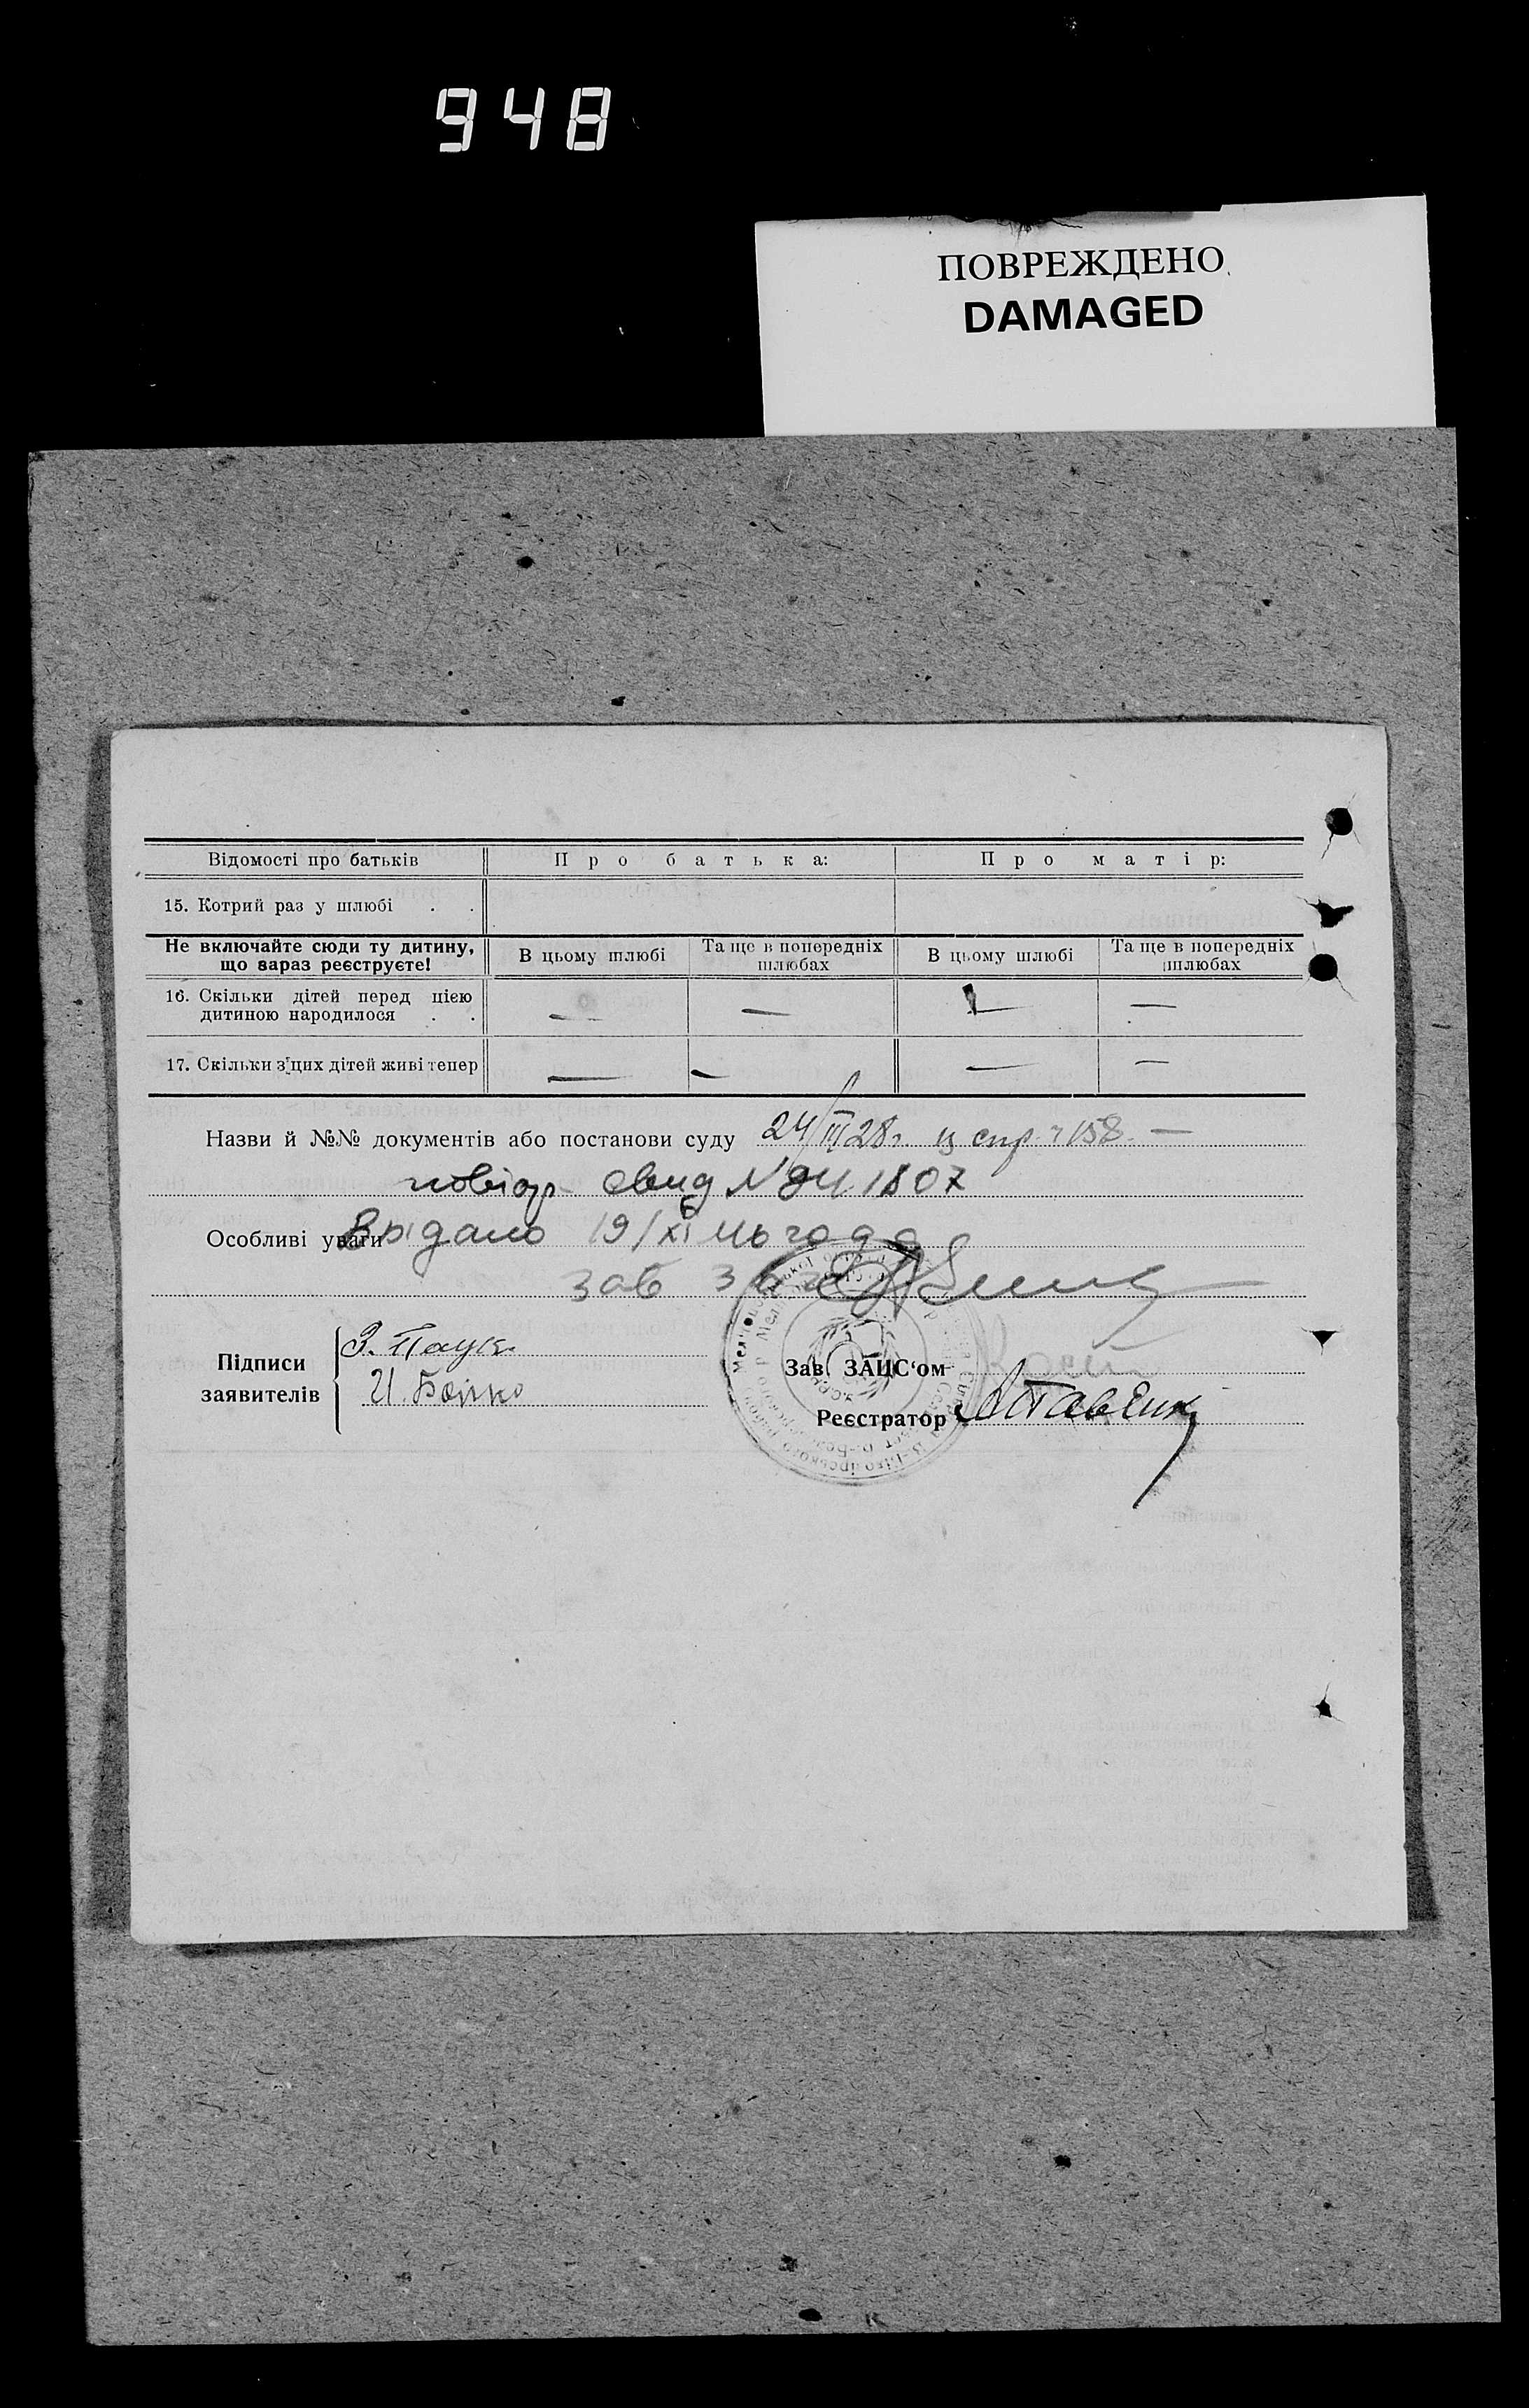 948
ПОВРЕЖДЕНО
DAMAGED
Відомості про батьків
Про батька:
Про матір:
15. Котрий раз у шлюбі . .
Не включайте сюди ту дитину,
що зараз реєструєте!
В цьому шлюбі
Та ще в попередніх
шлюбах
В цьому шлюбі
Та ще в попередніх
шлюбах
16. Скільки дітей перед цією
дитиною народилося . .
— — — —
17. Скільки з цих дітей живі тепер
— — — —
Назви й №№ документів або постанови суду 24/III 28 г. ц спр. 158 —
повтор свид № 1807
Особливі уваги Видано 19/XI 46 года
Зав
Підписи
заявителів
З. Паук
И. Бойко
Зав. ЗАЦС‘ом
Реєстратор